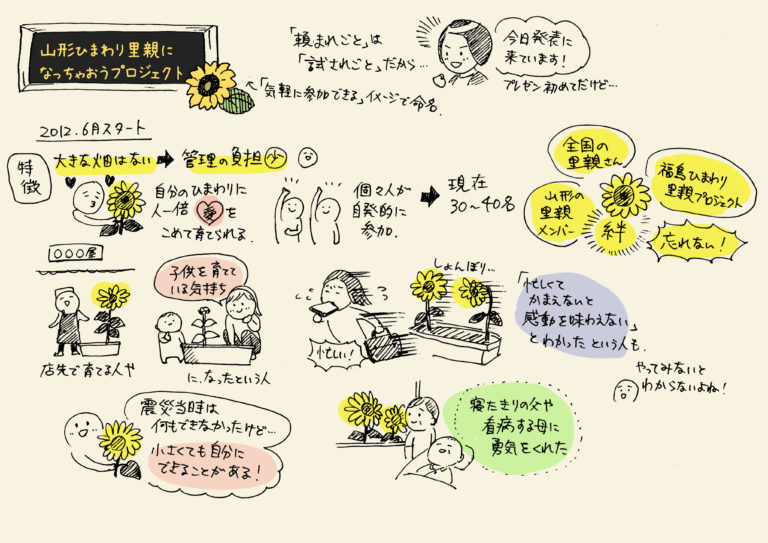 山形ひまわり里親に
なっちゃおうプロジェクト
「頼まれごと」は
「試されごと」だから…
今日発表に
来ています!
プレゼン初めてだけど…
←「気軽に参加できる」イメージで命名.
2012.6月スタート
特徴
大きな畑はない ➡ 管理の負担少
自分のひまわりに
人一倍愛を
こめて育てられる.
個々人が
自発的に
参加.
➡ 現在
30〜40名
全国の
里親さん
福島ひまわり
里親プロジェクト
山形の
里親
メンバー
絆
忘れない!
〇〇〇屋
店先で育てる人や
子供を育てて
いる気持ち
に、なったという人
忙しい!
しょんぼり…
「忙しくて
かまえないと
感動を味わえない」
とわかったという人も.
やってみないと
わからないよね!
震災当時は
何もできなかったけど…
小さくても自分に
できることがある!
寝たきりの父や
看病する母に
勇気をくれた